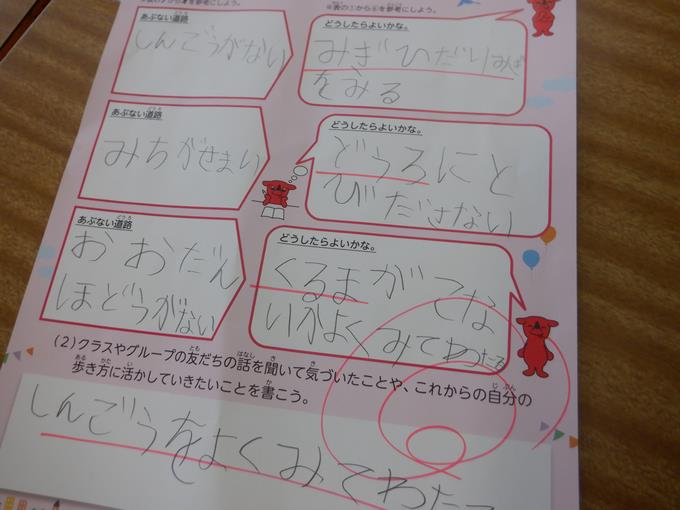 ※表の①から⑥を参考にしよう。
あぶない道路
しんごうがない
どうしたらよいかな。
みぎひだりみぎ
をみる
あぶない道路
みちがせまい
どうしたらよいかな。
どうろにと
びださない
あぶない道路
おおだん
ほどうがない
どうしたらよいかな。
くるまがてな
いかよくみてわたる
(2)クラスやグループの友だちの話を聞いて気づいたことや、これからの自分の
歩き方に活かしていきたいことを書こう。
しんごうをよくみてわた